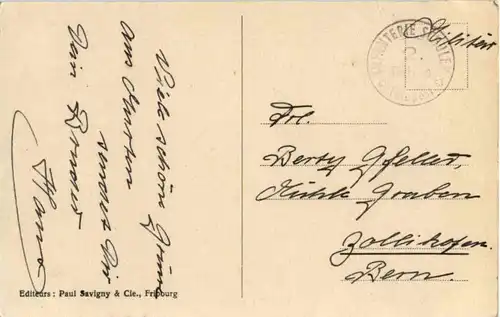 Viele schöne Grüsse
aus Murten
sendet Dir
Dein Bruder
Hans
Editeurs: Paul Savigny & Cie., Fribourg
Militär
INFANTERIE SCHULE
2.
Frl.
Berty Gfeller,
Graben
Zollikofen.
Bern.